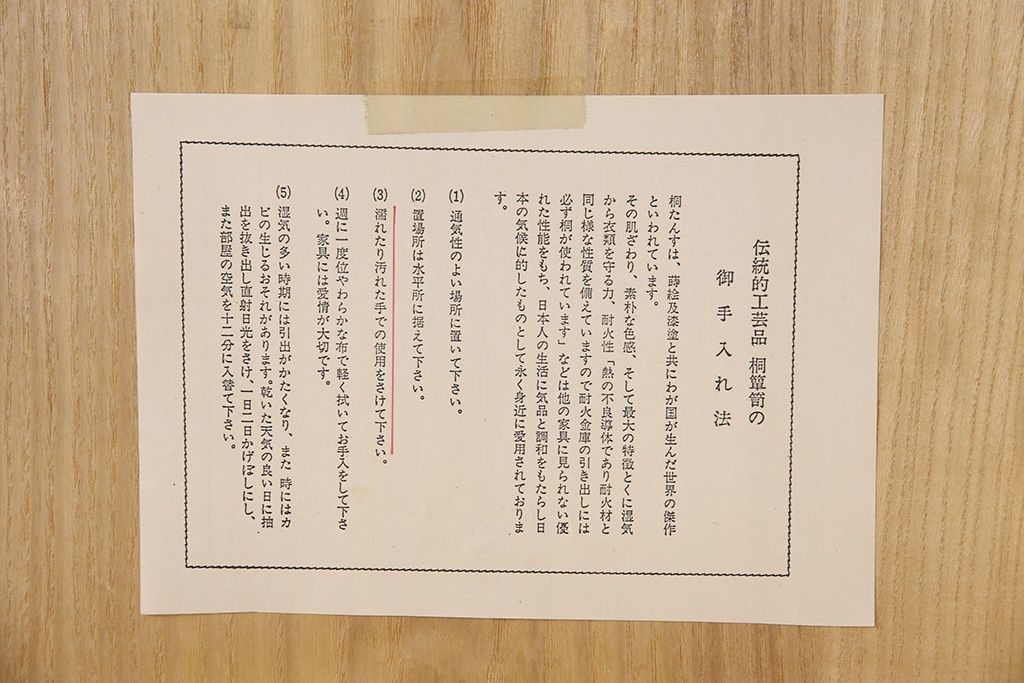 伝統的工芸品 桐簞笥の
御手入れ法
桐たんすは、蒔絵及漆塗と共にわが国が生んだ世界の傑作
といわれています。
その肌ざわり、素朴な色感、そして最大の特徴とくに湿気
から衣類を守る力、耐火性「熱の不良導体であり耐火材と
同じ様な性質を備えていますので耐火金庫の引き出しには
必ず桐が使われています」などは他の家具に見られない優
れた性能をもち、日本人の生活に気品と調和をもたらし日
本の気候に的したものとして永く身近に愛用されておりま
す。
(1) 通気性のよい場所に置いて下さい。
(2) 置場所は水平所に据えて下さい。
(3) 濡れたり汚れた手での使用をさけて下さい。
(4) 週に一度位やわらかな布で軽く拭いてお手入をして下さ
い。家具には愛情が大切です。
(5) 湿気の多い時期には引出がかたくなり、また 時にはカ
ビの生じるおそれがあります。乾いた天気の良い日に抽
出を抜き出し直射日光をさけ、一日二日かげぼしにし、
また部屋の空気を十二分に入替て下さい。